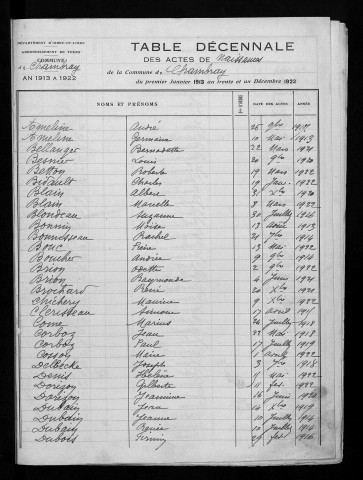 DÉPARTEMENT D'INDRE-ET-LOIRE
ARRONDISSEMENT DE TOURS
COMMUNE
de Chambray
AN 1913 A 1922
TABLE DÉCENNALE
DES ACTES DE Naissances
de la Commune de Chambray
du premier Janvier 1913 au trente et un Décembre 1922
NOMS ET PRÉNOMS DATE DES ACTES ANNÉE
Ameline André 25 9bre
Ameline Germaine 10 Mai 1913
Bellanger Bernadette 22 Mars 1921
Besnier Louis 20 9bre 1920
Betton Roberte 19 Mars 1922
Bidault Charles 19 Janv. 1922
Blain Albert 1920
Blain Marcelle Mars 1922
Blondeau Suzanne 30 Juillet 1916
Bonnin Moïse 13 Août 1913
Bonnisseau Rachel 21 1914
Bouc Irène 13 Mai 1922
Boucher Andrée 9 9bre 1914
Brion Odette 2 9bre 1922
Brion Raymonde 4 Juin 1921
Brochard René 20 Xbre 1920
Chichery Maurice 9 Xbre
Clerisseau Simone 17 avril
Come Marius 24 Juillet 1913
Corboz Jean 22 Mai 1918
Corboz Paul 17 Juillet 1919
Cosson Marie 1 Août 1922
Delbecke Joseph 3 1918
Denis Hélène 1 Mai 1922
Dorizon Gilberte 11 fév. 1922
Dorizon Jeannine 16 Juin 1920
Dubain Jean 14 Xbre 1919
Dubain Jeanne 10 Juillet 1914
Dubain Renée 10 Juillet 1914
Dubois Firmin 25 fév. 1916